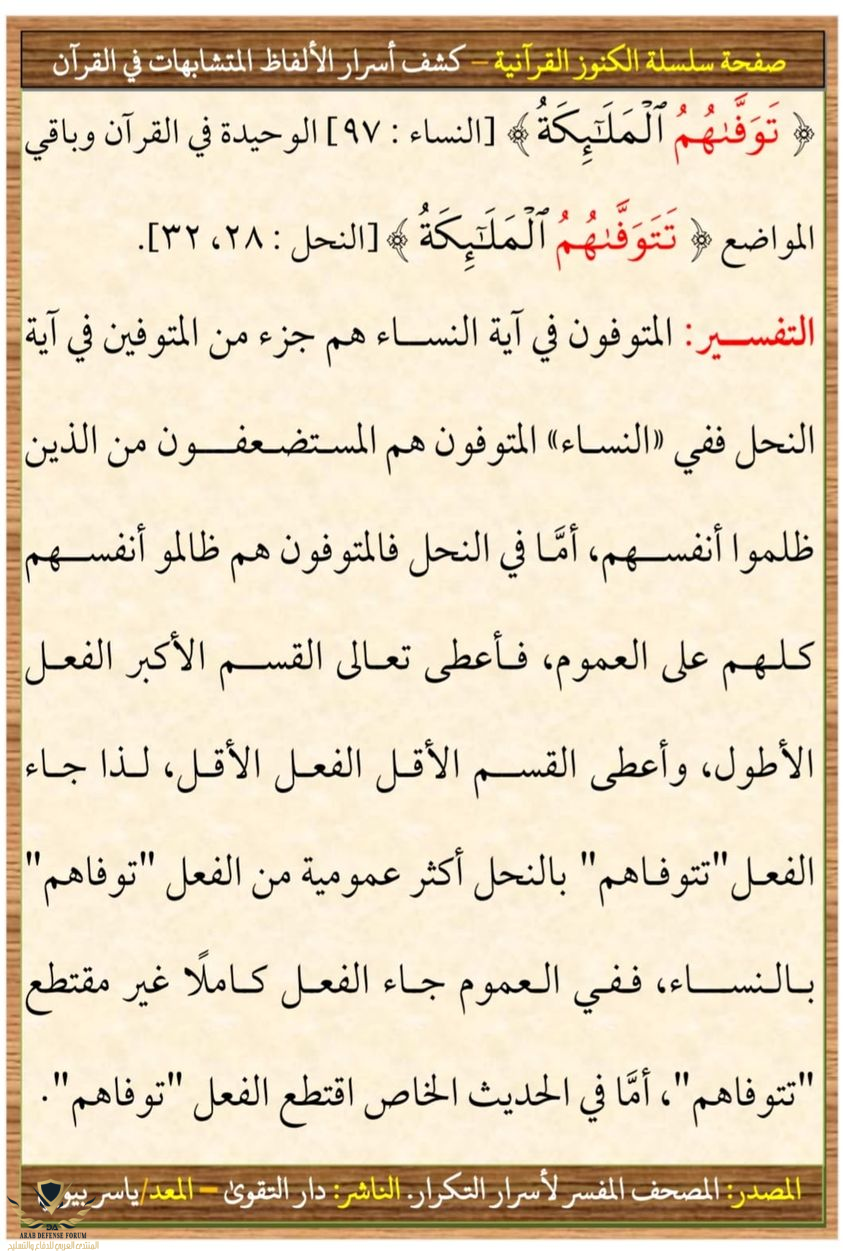 صفحة سلسلة الكنوز القرآنية – كشف أسرار الألفاظ المتشابهات في القرآن
﴿ تَوَفَّىٰهُمُ ٱلْمَلَـٰٓئِكَةُ ﴾ [النساء : ٩٧] الوحيدة في القرآن وباقي
المواضع ﴿ تَتَوَفَّىٰهُمُ ٱلْمَلَـٰٓئِكَةُ ﴾ [النحل : ٢٨، ٣٢].
التفسير: المتوفون في آية النساء هم جزء من المتوفين في آية
النحل ففي «النساء» المتوفون هم المستضعفون من الذين
ظلموا أنفسهم، أمَّا في النحل فالمتوفون هم ظالمو أنفسهم
كلهم على العموم، فأعطى تعالى القسم الأكبر الفعل
الأطول، وأعطى القسم الأقل الفعل الأقل، لذا جاء
الفعل "تتوفاهم" بالنحل أكثر عمومية من الفعل "توفاهم"
بالنساء، ففي العموم جاء الفعل كاملًا غير مقتطع
"تتوفاهم"، أمَّا في الحديث الخاص اقتطع الفعل "توفاهم".
المصدر: المصحف المفسر لأسرار التكرار. الناشر: دار التقوىٰ – المعد/ياسر
ARAB DEFENSE FORUM
المنتدى العربي للدفاع والتسليح